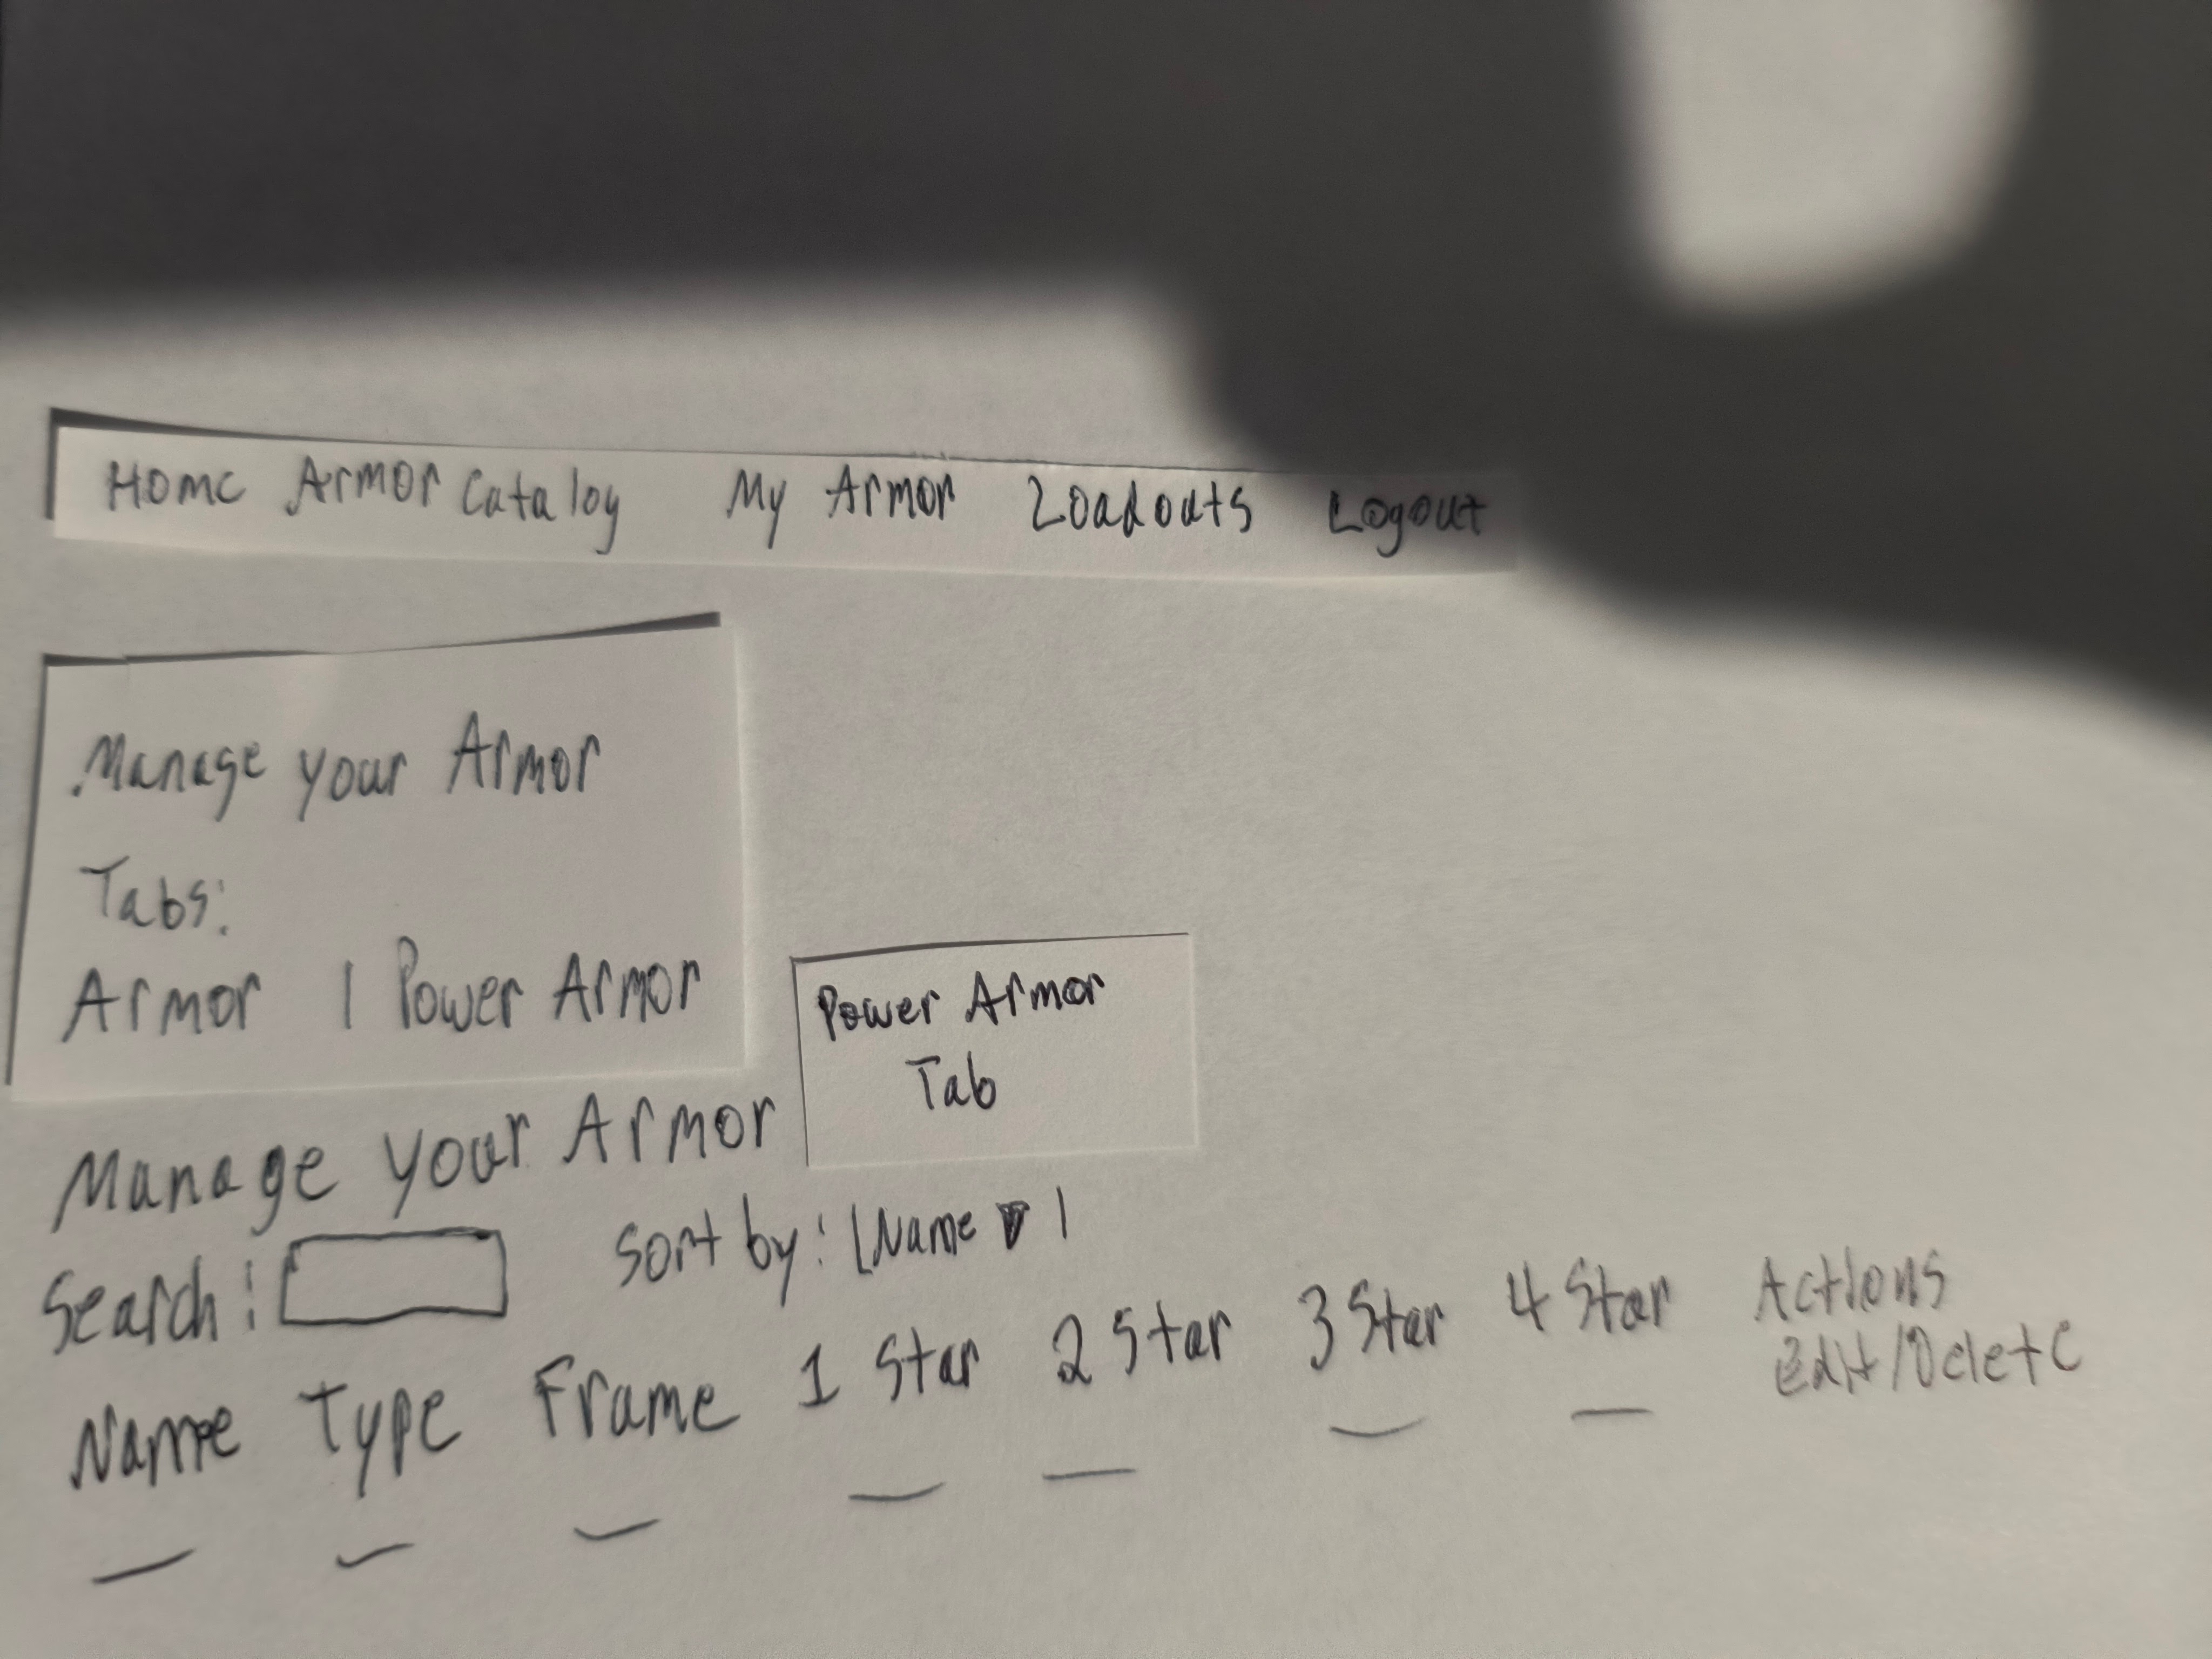 Home Armor Catalog My Armor Loadouts Logout
Manage your Armor
Tabs:
Armor | Power Armor
Power Armor
Tab
Manage your Armor
Search: Sort by: [Name ▼]
Name Type Frame 1 Star 2 Star 3 Star 4 Star Actions
Edit/Delete